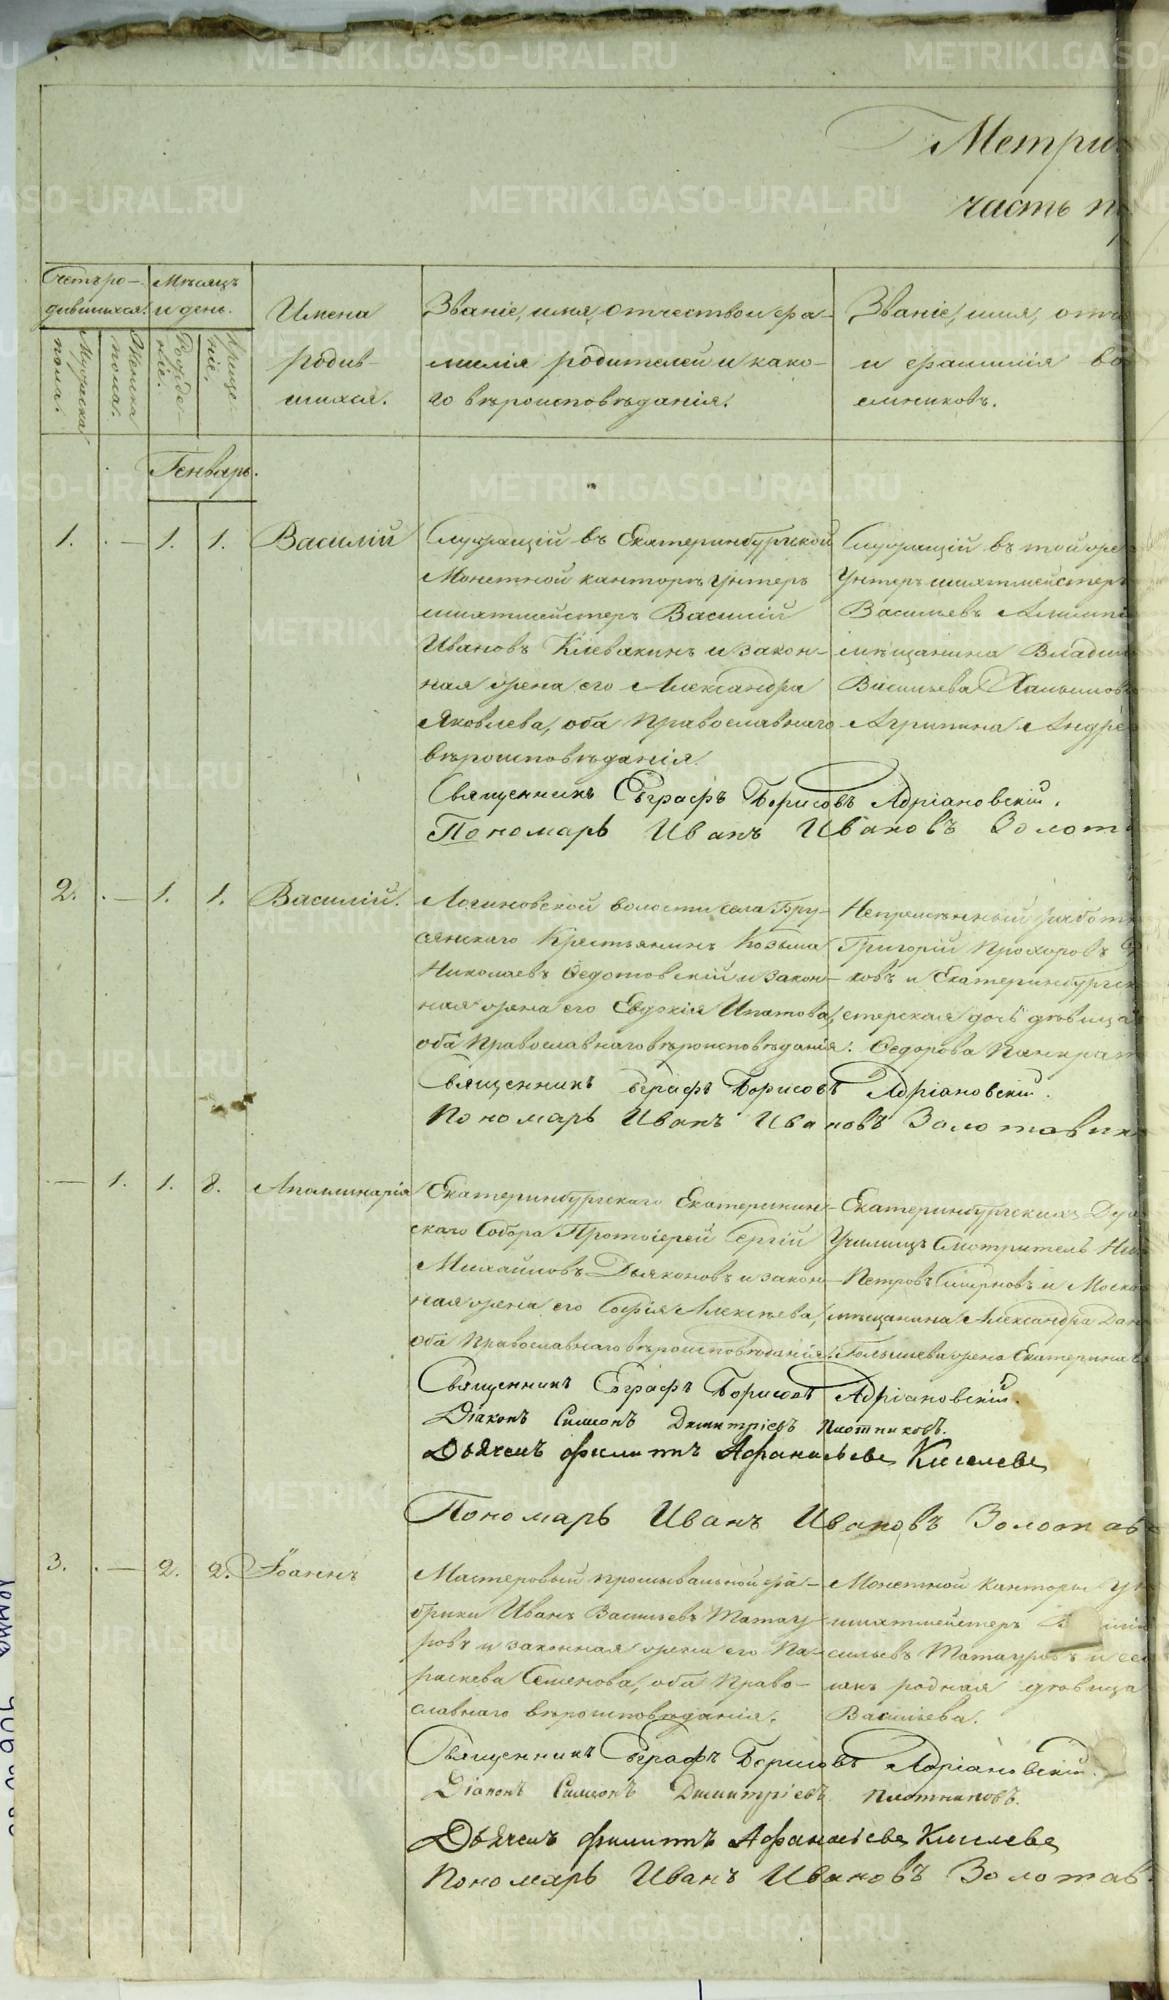 Метри
часть п
Счетъ ро-
дившихся.
Мѣсяцъ
и день.
Мужеска
пола.
Женска
пола.
Рожде-
нія.
Креще-
нія.
Имена
родив-
шихся.
Званіе, имя, отчество и фа-
милія родителей и како-
го вѣроисповѣданія.
Званіе, имя, отч
и фамилія во
емниковъ.
Генварь.
1. — 1. 1. Василій
Служащій въ Екатеринбургской
Монетной канторѣ унтеръ
шихтмейстеръ Василій
Ивановъ Клевакинъ и закон-
ная жена его Александра
Яковлева, оба Православнаго
вѣроисповѣданія.
Служащій въ той же
унтеръ шихтмейстеръ
Васильевъ
мѣщанина Влади
Васильева
Агрипина Андре
Священникъ Евграфъ Борисовъ Адріановскій.
Пономарь Иванъ Ивановъ Золот
2. — 1. 1. Василій.
Логиновской волости села Бру-
сянскаго Крестьянинъ Козьма
Николаевъ Ѳедотовскій и закон-
ная жена его Евдокія Ипатова,
оба Православнаго вѣроисповѣданія.
Непремѣнный работн
Григорій Прохоровъ
ковъ и Екатеринбургск
стерская дочь дѣвица
Ѳедорова Панкрат
Священникъ Евграфъ Борисовъ Адріановскій.
Пономарь Иванъ Ивановъ Золотавин
— 1. 1. 8. Аполинарія
Екатеринбургскаго Екатеринин-
скаго Собора Протоіерей Сергій
Михайловъ Дьяконовъ и закон-
ная жена его Софія Алексѣева,
оба Православнаго вѣроисповѣданія.
Екатеринбургскихъ Дух
Училищъ Смотритель
Петровъ Смирновъ и Моско
мѣщанина Александра Дан
жена Екатерина
Священникъ Евграфъ Борисовъ Адріановскій.
Діаконъ Симеонъ Димитріевъ Плотниковъ.
Дьячекъ Филиппъ Афанасьевъ Киселевъ
Пономарь Иванъ Ивановъ Золотав
3. — 2. 2. Іоаннъ
Мастеровый промывальной фа-
брики Иванъ Васильевъ Татау-
ровъ и законная жена его Па-
раскева Семенова, оба Право-
славнаго вѣроисповѣданія.
Монетной канторы Ун
шихтмейстеръ
сильевъ Татауровъ и сес
родная дѣвица
Васильева.
Священникъ Евграфъ Борисовъ Адріановскій.
Діаконъ Симеонъ Димитріевъ Плотниковъ.
Дьячекъ Филиппъ Афанасьевъ Киселевъ
Пономарь Иванъ Ивановъ Золотав
METRIKI.GASO-URAL.RU